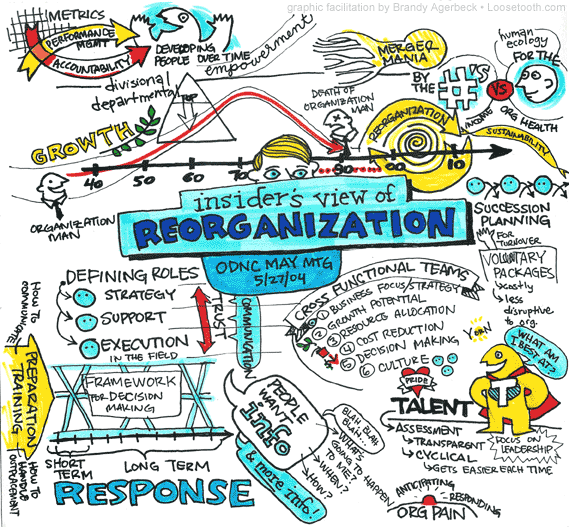 graphic facilitation by Brandy Agerbeck • Loosetooth.com
METRICS
PERFORMANCE
MGMT
ACCOUNTABILITY
DEVELOPING
PEOPLE OVER TIME
empowerment
divisional
departmental
TOP
GROWTH
MERGER
MANIA
BY
THE
#'S
VS
human
ecology
FOR THE
ORG HEALTH
INCOME
SUSTAINABILITY
DEATH OF
ORGANIZATION
MAN
REORGANIZATION
40
50
60
70
90
00
10
ORGANIZATION
MAN
insider's view of
REORGANIZATION
ODNC MAY MTG
5/27/04
SUCCESSION
PLANNING
FOR
TURNOVER
VOLUNTARY
PACKAGES
costly
less
disruptive
to org.
DEFINING ROLES
STRATEGY
SUPPORT
EXECUTION
IN THE FIELD
TRUST
COMMUNICATION
CROSS FUNCTIONAL TEAMS
1 BUSINESS FOCUS/STRATEGY
2 GROWTH POTENTIAL
3 RESOURCE ALLOCATION
4 COST REDUCTION
5 DECISION MAKING
6 CULTURE
HOW TO
COMMUNICATE
PREPARATION
TRAINING
HOW TO
HANDLE
OUTPLACEMENT
FRAMEWORK
FOR DECISION
MAKING
SHORT
TERM
LONG TERM
RESPONSE
PEOPLE
WANT
info
& more info!
BLAH BLAH
BLAH...
WHAT'S
GOING TO
HAPPEN
TO ME?
WHEN?
HOW?
YORN
WHAT AM
I BEST AT?
PRIDE
TALENT
T
ASSESSMENT
TRANSPARENT
CYCLICAL
GETS EASIER EACH TIME
FOCUS ON
LEADERSHIP
ANTICIPATING
RESPONDING
ORG PAIN